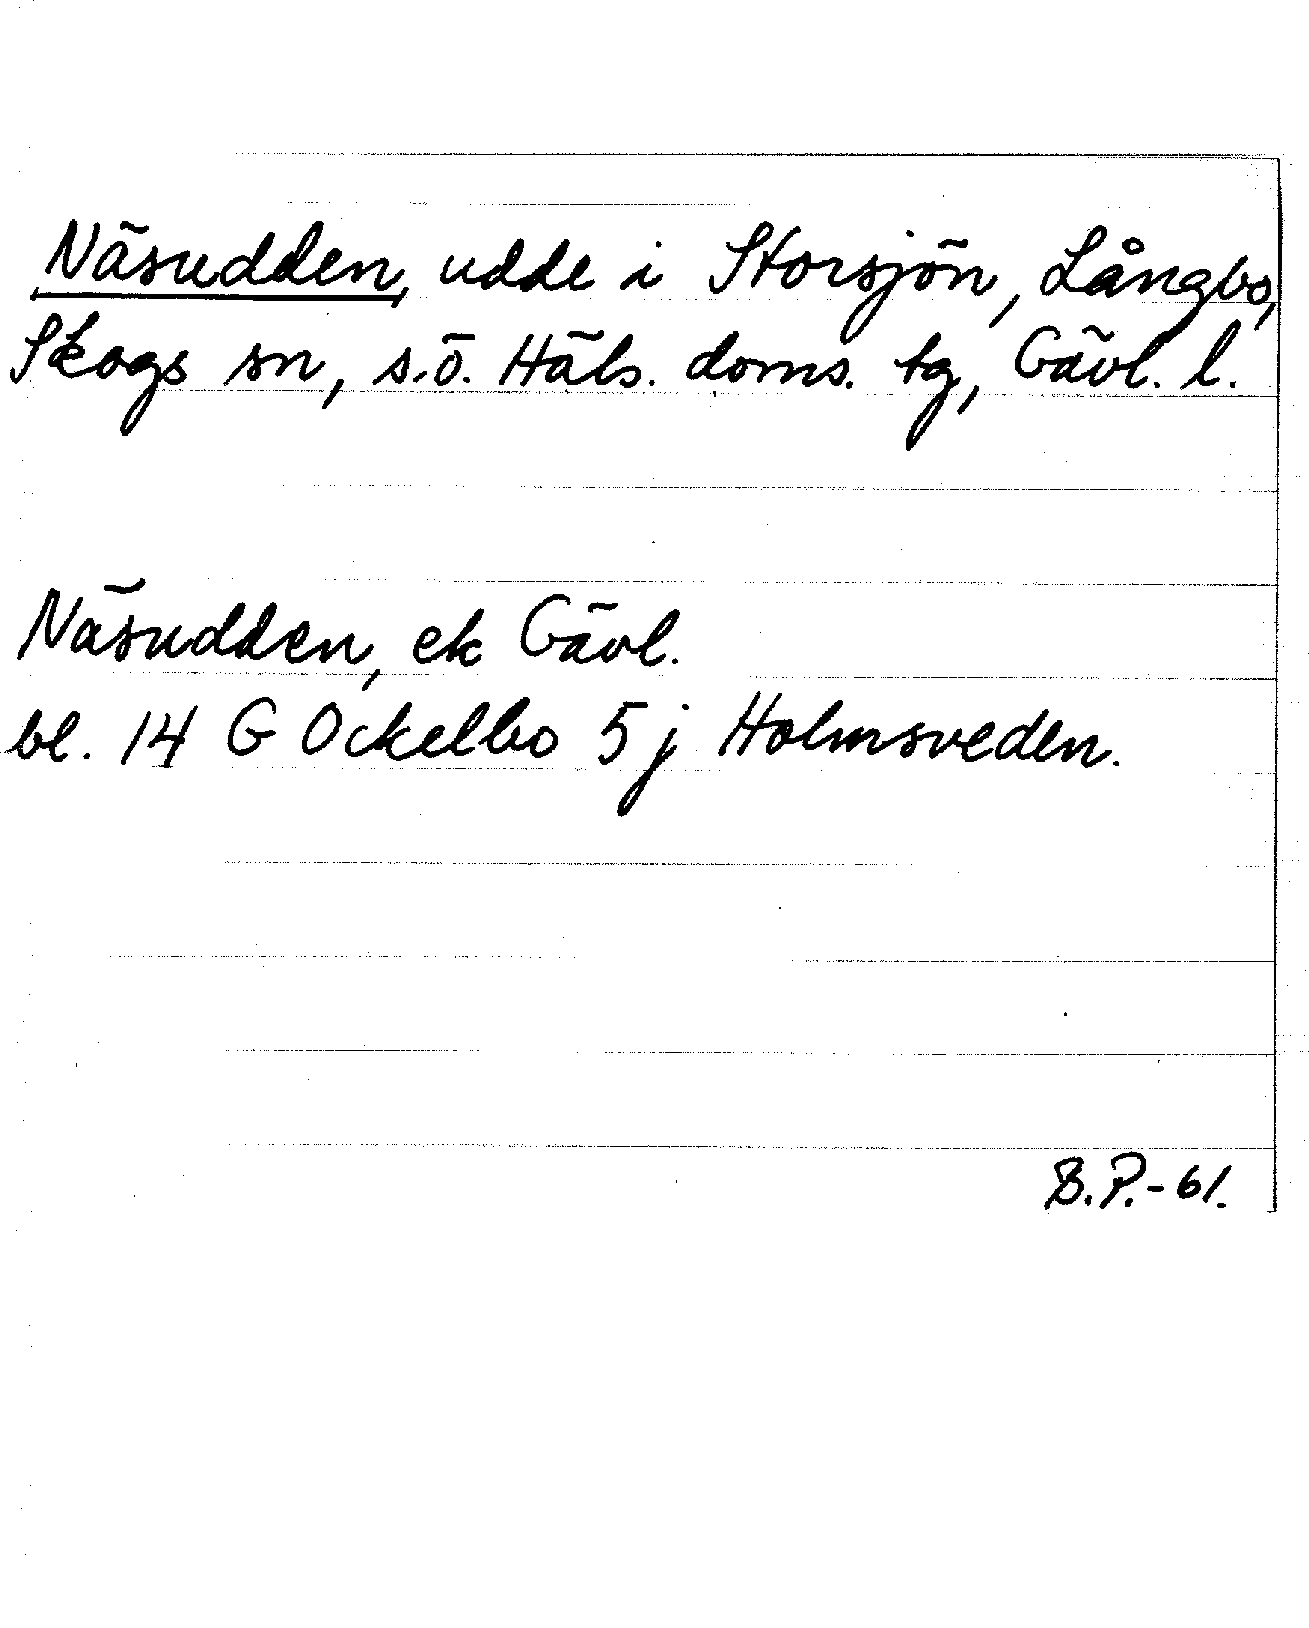 Näsudden, udde i Storsjön, Långbo,
Skogs sn, s.ö. Häls. doms. tg, Gävl. l.
Näsudden, ek Gävl.
bl. 14 G Ockelbo 5 j Holmsveden.
B.P.-61.